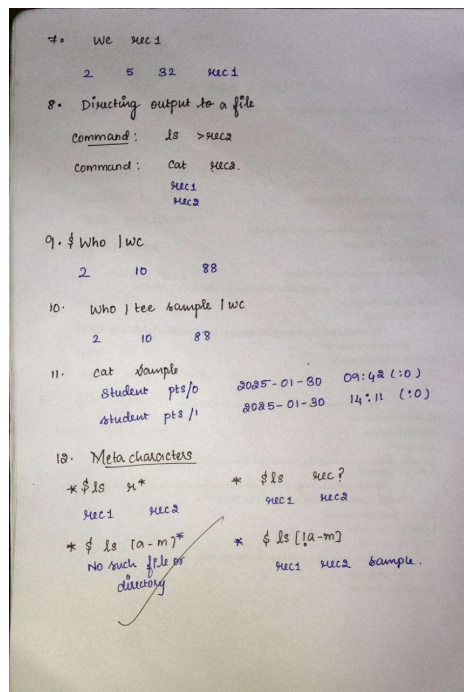 7. We rec1
2 5 32 rec1
8. Directing output to a file
Command: ls >rec2
Command: Cat rec2.
rec1
rec2
9. $ Who | wc
2 10 88
10. Who | tee sample | wc
2 10 88
11. cat sample
student pts/0 2025-01-30 09:42 (:0)
student pts/1 2025-01-30 14:11 (:0)
12. Meta characters
* $ ls r*
rec1 rec2
* $ls rec?
rec1 rec2
* $ ls [a-m]*
No such file or
directory
* $ ls [!a-m]
rec1 rec2 sample.